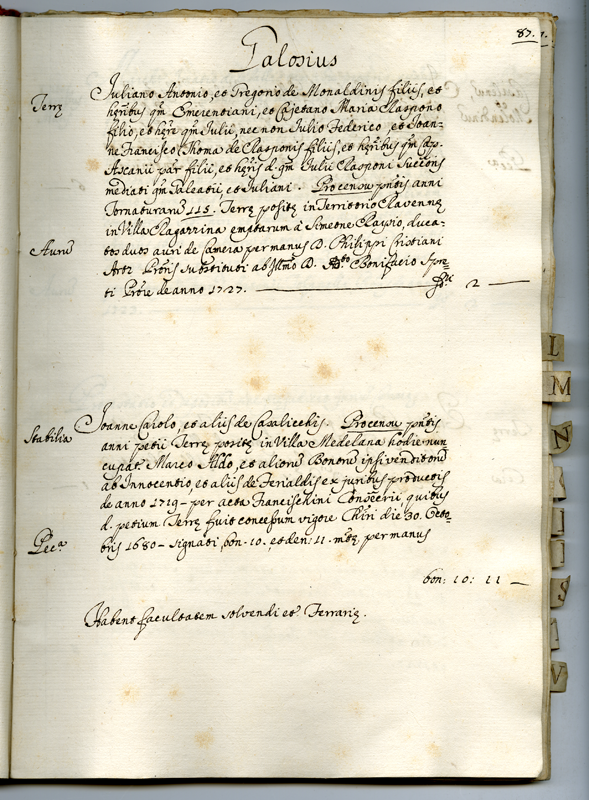 87.
Palosius
Terrę
Juliano Antonio, et Gregorio de Monaldinis filiis, et
hęribus qm̃ Emerentiani, et Cajetano Maria Clasponi
filio, et hęre qm̃ Julii, nec non Julio Federico, et Joan-
ne Francisco Thoma de Clasponis filiis, et hęribus qm̃ Cap.
Ascanii par filii, et hęris d. qm̃ Julii Clasponi
mediati qm̃ Galeatii, et Juliani. Pro censu pñtis anni
Tornaturarũ 115. Terrę positę in Territorio Ravennę
in Villa Ragarrina emptarum à Simeone Raysio, duca-
Aurũ
tos duos auri de Camera per manus D. Philippi Cristiani
substituti ab Illmo D. Bonifacio Spre-
ti Proĩe de anno 1727. 2
Stabilia
Joanne Carolo, et aliis de Casalicchis. Pro censu pñtis
anni petii Terrę positę in Villa Medelana hodie nun
cupatę Marco Aldo, et aliorũ Bonorũ ipsi venditorũ
ab Innocentio, et aliis de Ferialdis ex juribus productis
de anno 1719 - per acta Francischini quibus
d. petium Terrę fuit concessum vigore die 30. Octo-
Pec.a
bris 1680 - signati, bon. 10. et den: 11. per manus
bon: 10: 11
Habent facultatem solvendi et Ferrarię.
L
M
N
S
V